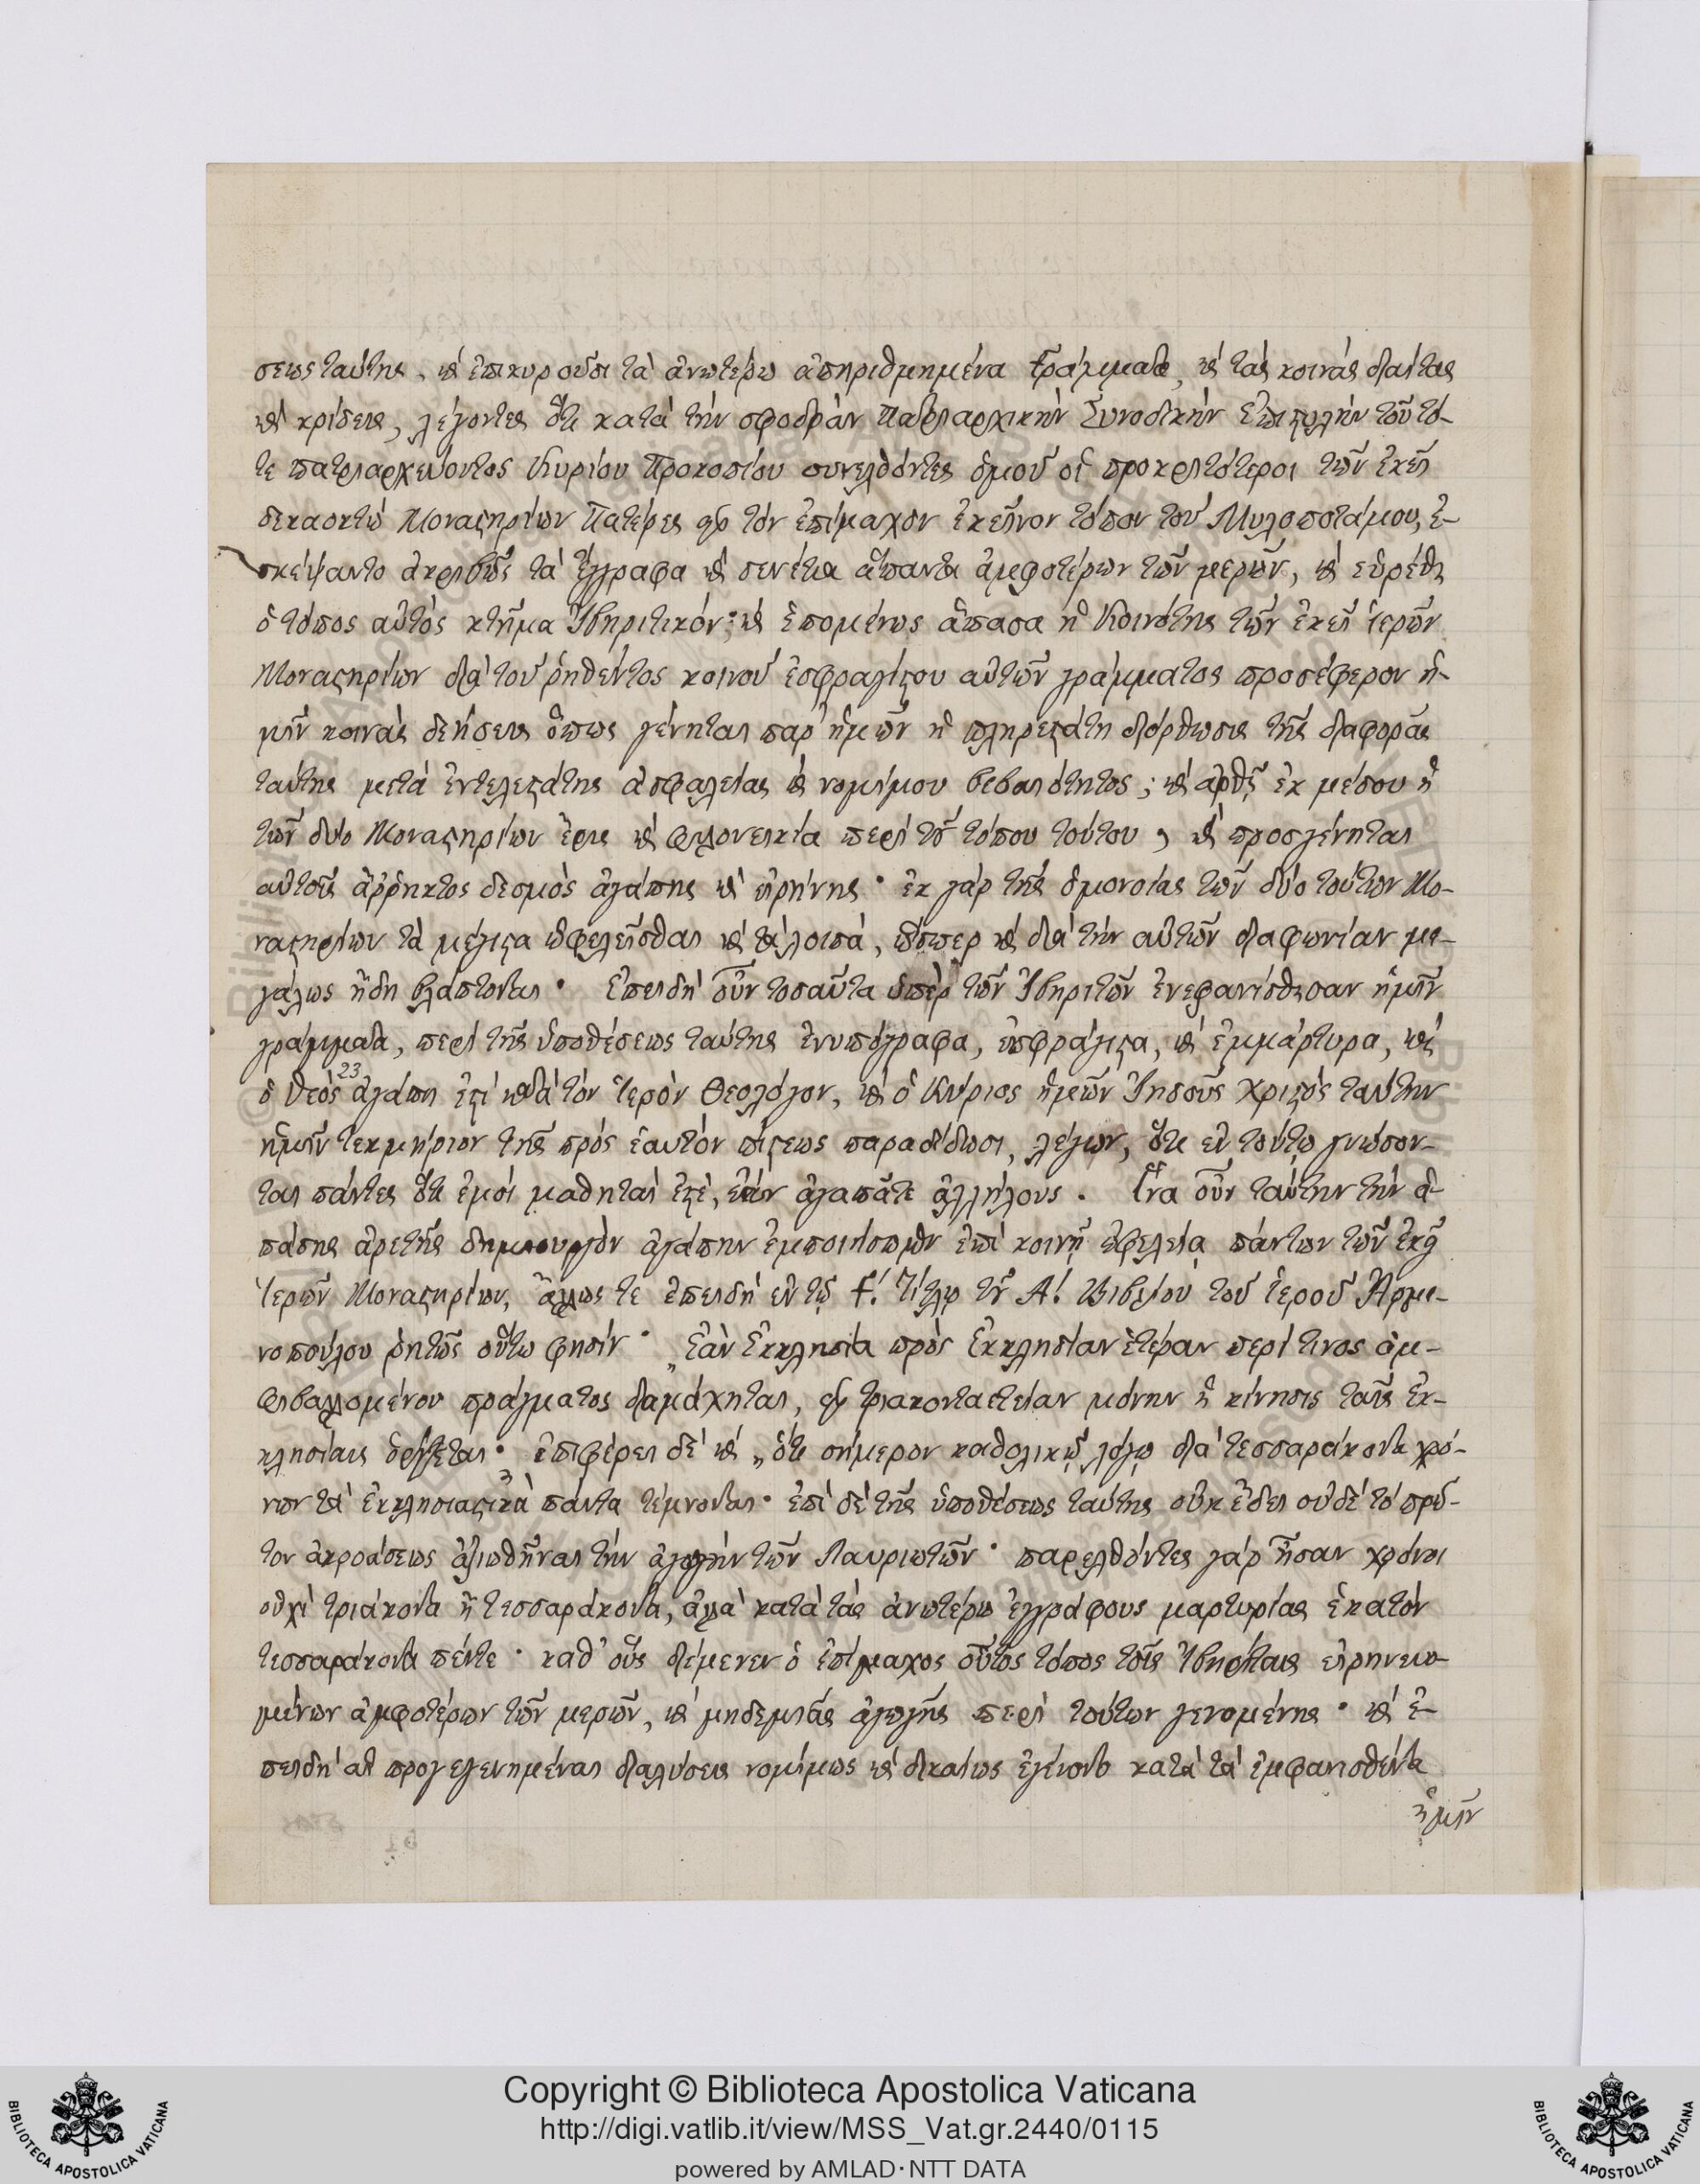 σεως ταύτης, καὶ ἐπικυροῦσι τὰ ἀνωτέρω ἀπηριθμημένα Γράμματα, καὶ τὰς κοινὰς διαίτας
καὶ κρίσεις, λέγοντες ὅτι κατὰ τὴν σφοδρὰν Πατριαρχικὴν Συνοδικὴν Ἐπιστολὴν τοῦ τό-
τε πατριαρχεύοντος Κυρίου Προκοπίου συνελθόντες ὁμοῦ οἱ προκριτότεροι τῶν ἐκεῖ
δεκαοκτὼ Μοναστηρίων Πατέρες εἰς τὸν ἐπίμαχον ἐκεῖνον τόπον τοῦ Μυλοποτάμου, ἐ-
σκέψαντο ἀκριβῶς τὰ ἔγγραφα καὶ σενέτια ἅπαντα ἀμφοτέρων τῶν μερῶν, καὶ εὑρέθη
ὁ τόπος αὐτὸς κτῆμα Ἰβηριτικόν· καὶ ἑπομένως ἅπασα ἡ Κοινότης τῶν ἐκεῖ ἱερῶν
Μοναστηρίων διὰ τοῦ ῥηθέντος κοινοῦ ἐσφραγίστου αὐτῶν γράμματος προσέφερον ἡ-
μῖν κοινὰς δεήσεις ὅπως γένηται παρ' ἡμῶν ἡ πληρεστάτη διόρθωσις τῆς διαφορᾶς
ταύτης μετὰ ἐντελεστάτης ἀσφαλείας καὶ νομίμου βεβαιότητος; καὶ ἀρθῇ ἐκ μέσου ἡ
τῶν δύο Μοναστηρίων ἔρις καὶ φιλονεικία περὶ τοῦ τόπου τούτου, καὶ προσγένηται
αὐτοῖς ἄῤῥηκτος δεσμὸς ἀγάπης καὶ εἰρήνης· ἐκ γὰρ τῆς ὁμονοίας τῶν δύο τούτων Μο-
ναστηρίων τὰ μέγιστα ὠφελεῖσθαι καὶ τὰ λοιπά, ὥσπερ καὶ διὰ τὴν αὐτῶν διαφωνίαν με-
γάλως ἤδη βλάπτονται· Ἐπειδὴ οὖν τοσαῦτα ὑπὲρ τῶν Ἰβηριτῶν ἐνεφανίσθησαν ἡμῖν
γράμματα, περὶ τῆς ὑποθέσεως ταύτης ἐνυπόγραφα, ἐσφράγιστα, καὶ ἐμμάρτυρα, καὶ
ὁ Θεὸς 23 ἀγάπη ἐστὶ κατὰ τὸν Ἱερὸν Θεολόγον, καὶ ὁ Κύριος ἡμῶν Ἰησοῦς Χριστὸς ταύτην
ἡμῖν τεκμήριον τῆς πρὸς ἑαυτὸν πίστεως παραδίδωσι, λέγων, ὅτι ἐν τούτῳ γνώσον-
ται πάντες ὅτι ἐμοὶ μαθηταί ἐστέ, ἐὰν ἀγαπᾶτε ἀλλήλους. Ἵνα οὖν ταύτην τὴν ἁ-
πάσης ἀρετῆς δημιουργὸν ἀγάπην ἐμποιήσωμεν ἐπὶ κοινῇ ὠφελείᾳ πάντων τῶν ἐκεῖ
Ἱερῶν Μοναστηρίων, ἄλλως τε ἐπειδὴ ἐν τῷ Γ! Τίτλῳ τοῦ Α! Βιβλίου τοῦ ἱεροῦ Ἁρμε-
νοπούλου ῥητῶς οὕτω φησίν· „Ἐὰν Ἐκκλησία πρὸς Ἐκκλησίαν ἑτέραν περί τινος ἀμ-
φιβαλλομένου πράγματος διαμάχηται, εἰς τριακονταετείαν μόνην ἡ κίνησις ταῖς Ἐκ-
κλησίαις ὁρίζεται· ἐπιφέρει δὲ καὶ „ὅτι σήμερον καθολικῷ λόγῳ διὰ τεσσαράκοντα χρό-
νων τὰ ἐκκλησιαστικὰ πάντα τέμνονται· ἐπὶ δὲ τῆς ὑποθέσεως ταύτης οὐκ ἔδει οὐδὲ τὸ πρῶ-
τον ἀκροάσεως ἀξιωθῆναι τὴν ἀγωγὴν τῶν Λαυριωτῶν· παρελθόντες γὰρ ἦσαν χρόνοι
οὐχὶ τριάκοντα ἢ τεσσαράκοντα, ἀλλὰ κατὰ τὰς ἀνωτέρω ἐγγράφους μαρτυρίας ἑκατὸν
τεσσαράκοντα πέντε· καθ' οὓς διέμενεν ὁ ἐπίμαχος οὗτος τόπος τοῖς Ἰβηρίταις εἰρηνευο-
μένων ἀμφοτέρων τῶν μερῶν, καὶ μηδεμιᾶς ἀγωγῆς περὶ τούτων γενομένης· καὶ ἐ-
πειδὴ αἱ προγεγενημέναι διαλύσεις νομίμως καὶ δικαίως ἐγένοντο κατὰ τὰ ἐμφανισθέντα
ἡμῖν
Copyright © Biblioteca Apostolica Vaticana
http://digi.vatlib.it/view/MSS_Vat.gr.2440/0115
powered by AMLAD·NTT DATA
BIBLIOTECA APOSTOLICA VATICANA
BIBLIOTECA APOSTOLICA VATICANA